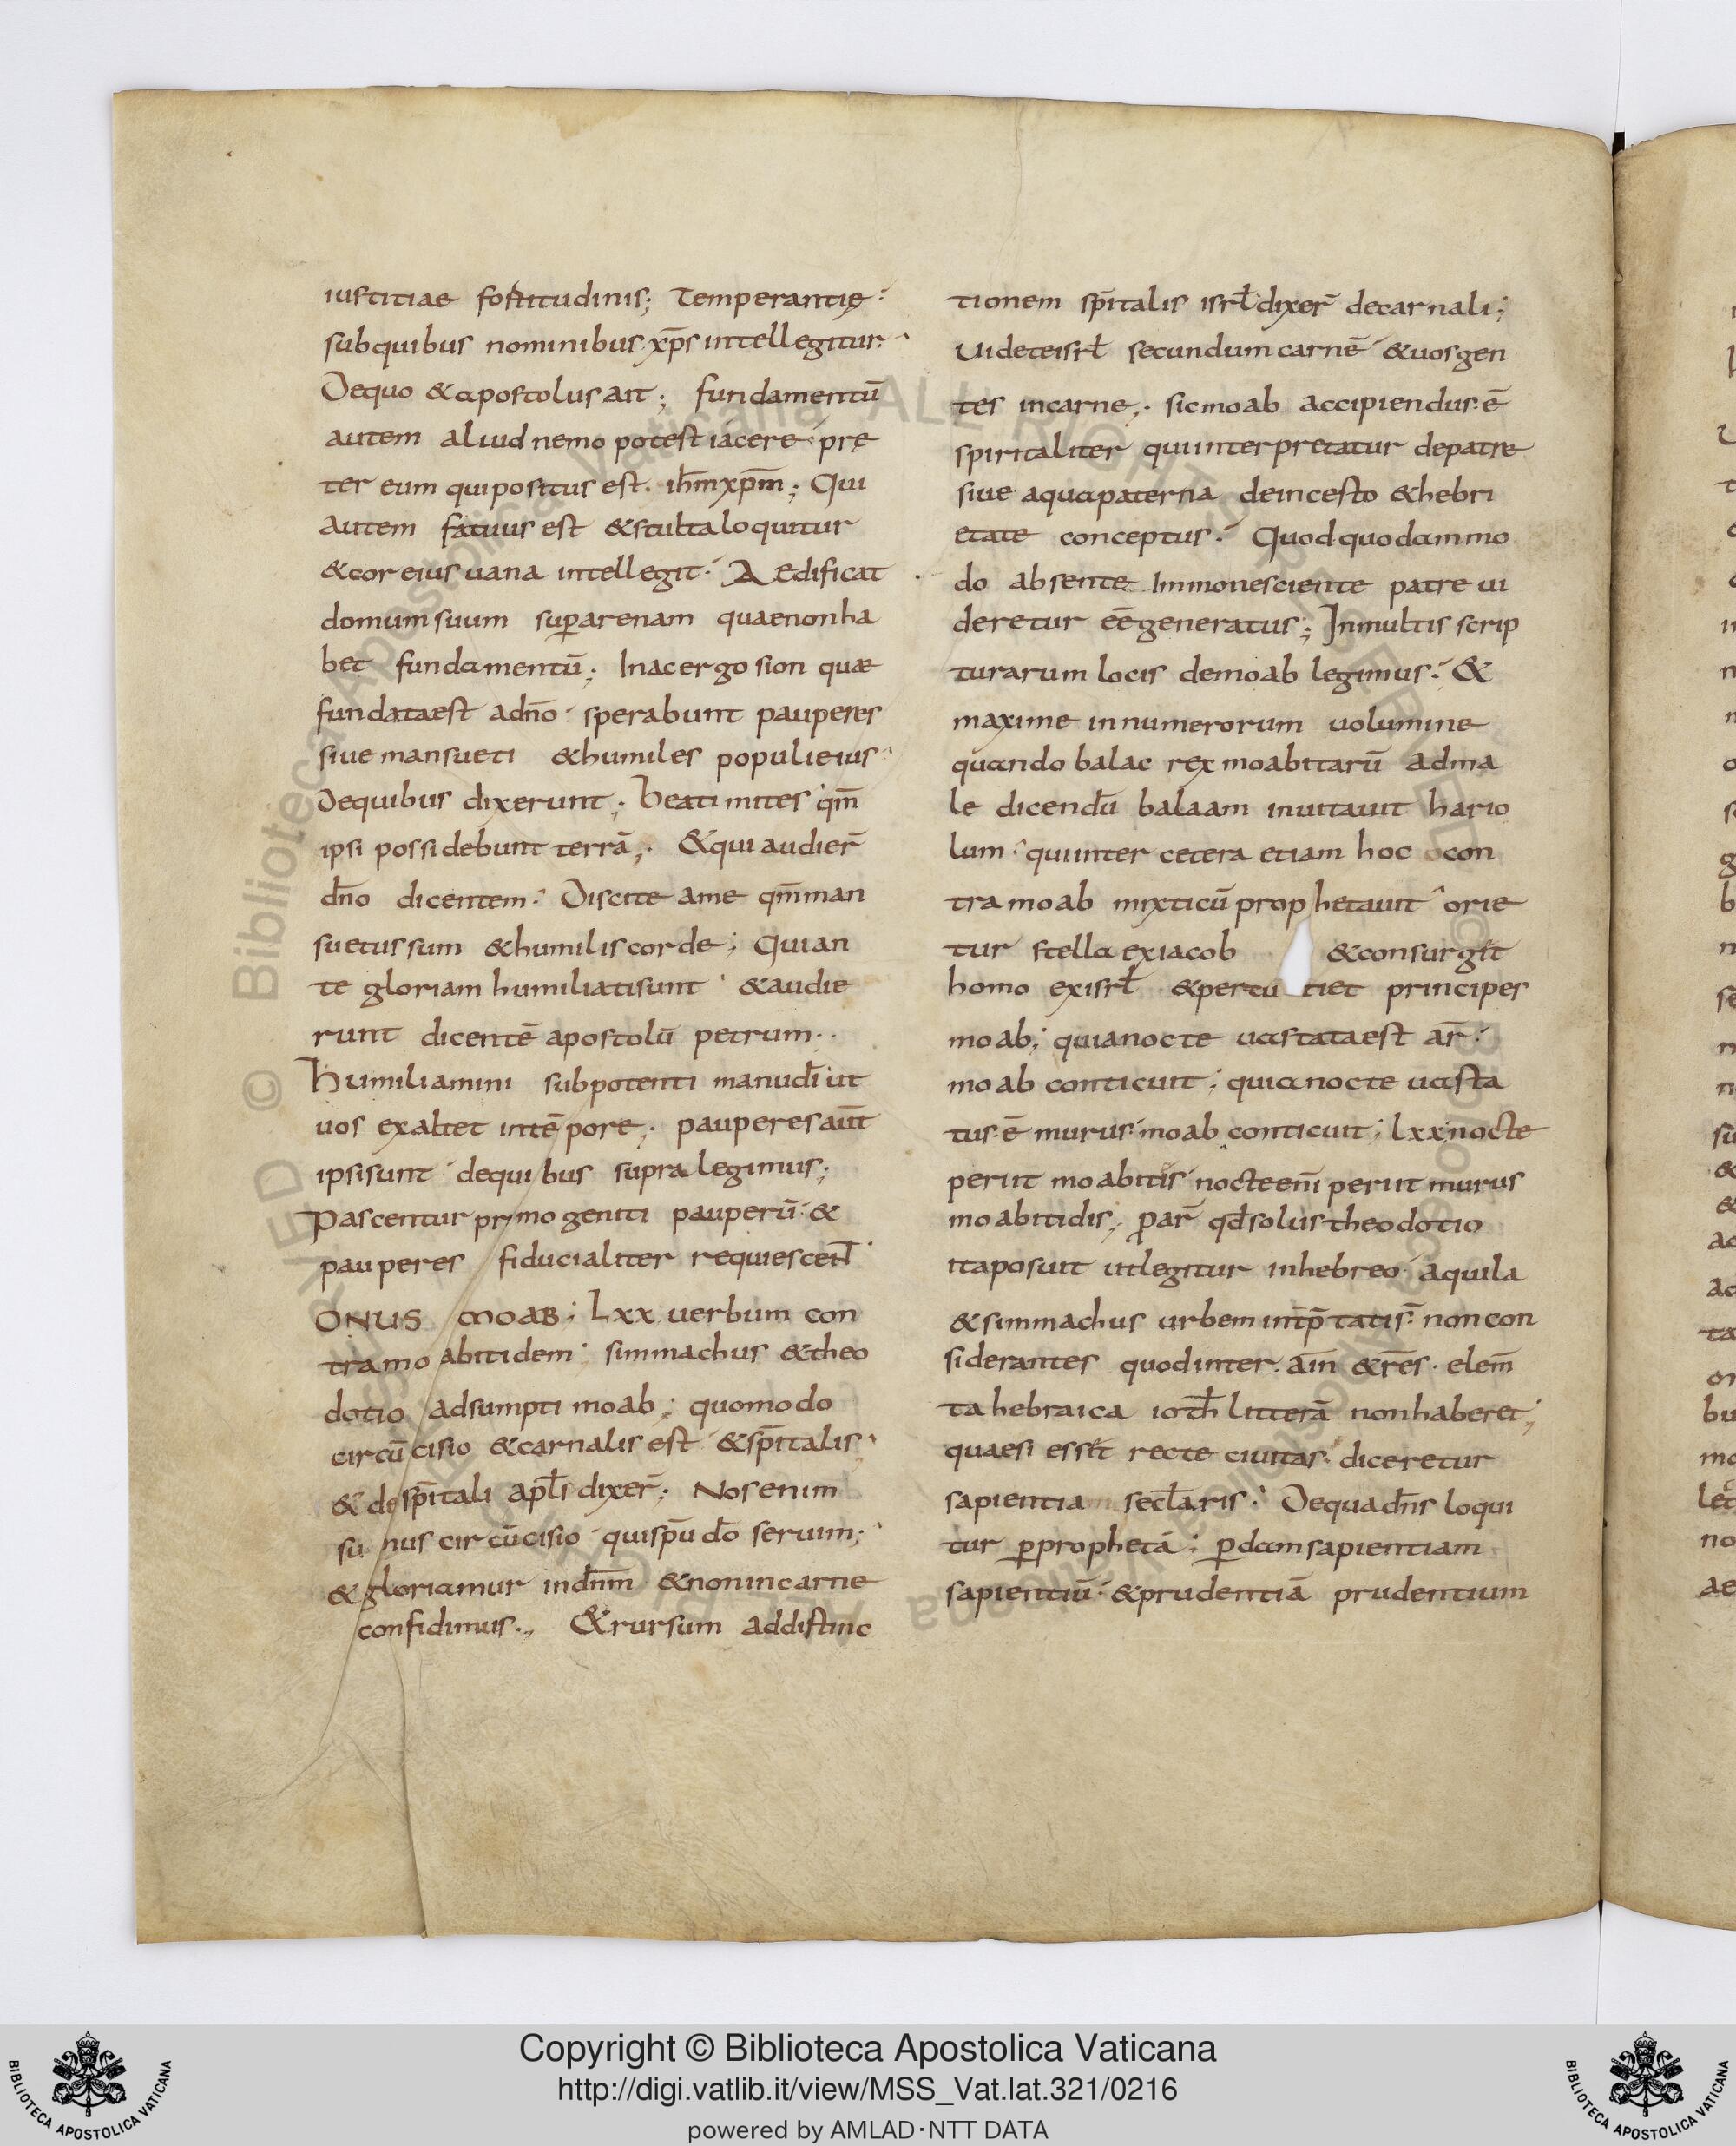 iustitiae fortitudinis; Temperantię·
subquibus nominibus xp̄s intellegitur·
Dequo &apostolus ait; fundamentū
autem aliud nemo potest iacere prę
ter eum qui positus est. ih̄m xp̄m; Qui
autem fatuus est &stulta loquitur
&cor eius uana intellegit· Aedificat
domum suum sup̄arenam quaenonha
bet fundamentū; Inac ergo sion quæ
fundataest adn̄o sperabunt pauperes
siue mansueti &humiles populi eius·
Dequibus dixerunt; beati mites qm̄
ipsi possidebunt terrā; &qui audier̄
dn̄o dicentem· Discite ame qm̄ man
suetus sum &humilis corde; Qui an
te gloriam humiliati sunt &audie
runt dicentē apostolū petrum··
humiliamini subpotenti manu dī ut
uos exaltet intēpore; pauperes aūt
ipsi sunt dequibus supra legimus;
Pascentur primogeniti pauperū &
pauperes fiducialiter requiescen̄t
ONUS MOAB; Lxx uerbum con
tra moabitidem simmachus &theo
dotio adsumpti moab; quomodo
circūcisio &carnalis est &sp̄italis·
&desp̄itali apl̄i dixer̄; Nos enim
su nus circūcisio quisp̄u dō seruim;
&gloriamur indn̄m &nonincarne
confidimus., &rursum addistinc
tionem sp̄italis isrl̄ dixer̄ decarnali;
Uidete isrl̄ secundum carnē &uos gen
tes incarne; sic moab accipiendus ē
spiritaliter qui interpretatur depatre
siue aqua paterna deincesto &hebri
etate conceptus· Quod quodammo
do absente Immo nesciente patre ui
deretur eē generatus; Inmultis scrip
turarum locis demoab legimus· &
maxime innumerorum uolumine
quando balac rex moabitarū adma
le dicendū balaam inuitauit hario
lum· qui inter cetera etiam hoc con
tra moab mixticū prophetauit orie
tur stella exiacob &consurgit
homo exisrl̄ &percu tiet principes
moab; quia nocte uastata est ar̄·
moab conticuit; quia nocte uasta
tus ē murus moab conticuit; Lxx nocte
periit moabitis nocte enī periit murus
moabitidis; p̄ar̄ qd̄ solus theodotio
ita posuit ut legitur inhebreo aquila
&simmachus urbem int̄p̄tatis· non con
siderantes quod inter· aīn &rēs· elem̄
ta hebraica ioth̄ litterā non haberet;
quae si essit recte ciuitas diceretur
sapientia secl̄aris· Dequa dn̄s loqui
tur p̄prophetā; p̄dam sapientiam
sapientiū· &prudentiā prudentium
Copyright © Biblioteca Apostolica Vaticana
http://digi.vatlib.it/view/MSS_Vat.lat.321/0216
powered by AMLAD·NTT DATA
BIBLIOTECA APOSTOLICA VATICANA
BIBLIOTECA APOSTOLICA VATICANA